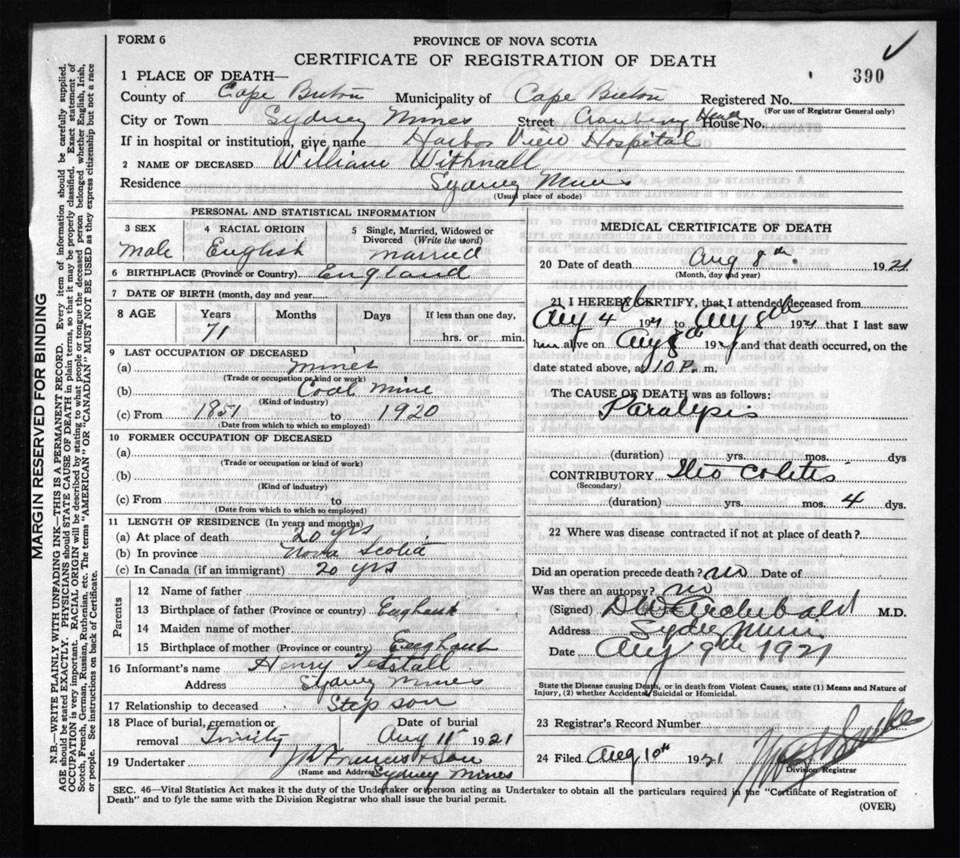 FORM 6
PROVINCE OF NOVA SCOTIA
CERTIFICATE OF REGISTRATION OF DEATH
390
1 PLACE OF DEATH—
County of Cape Breton Municipality of Cape Breton Registered No.
(For use of Registrar General only)
City or Town Sydney Mines Street Cranberry Head House No.
If in hospital or institution, give name Harbor View Hospital
2 NAME OF DECEASED William Withnall
Residence Sydney Mines
(Usual place of abode)
PERSONAL AND STATISTICAL INFORMATION
3 SEX 4 RACIAL ORIGIN 5 Single, Married, Widowed or Divorced (Write the word)
Male English Married
6 BIRTHPLACE (Province or Country) England
7 DATE OF BIRTH (month, day and year)
8 AGE Years Months Days If less than one day,
71 hrs. or min.
9 LAST OCCUPATION OF DECEASED
(a) Miner
(Trade or occupation or kind or work)
(b) Coal Mine
(Kind of industry)
(c) From 1851 to 1920
(Date from which to which so employed)
10 FORMER OCCUPATION OF DECEASED
(a)
(Trade or occupation or kind of work)
(b)
(Kind of industry)
(c) From to
(Date from which to which so employed)
11 LENGTH OF RESIDENCE (In years and months)
(a) At place of death 20 yrs
(b) In province Nova Scotia
(c) In Canada (if an immigrant) 20 yrs
Parents
12 Name of father
13 Birthplace of father (Province or country) England
14 Maiden name of mother
15 Birthplace of mother (Province or country) England
16 Informant's name Henry
Address Sydney Mines
17 Relationship to deceased Step son
18 Place of burial, cremation or removal Trinity Date of burial Aug 11 1921
19 Undertaker Francis & Son
(Name and Address) Sydney Mines
MEDICAL CERTIFICATE OF DEATH
20 Date of death Aug 8th 1921
(Month, day and year)
21 I HEREBY CERTIFY, that I attended deceased from
Aug 4th 1921 to Aug 8th 1921 that I last saw
him alive on Aug 8th 1921 and that death occurred, on the
date stated above, at 10 P. m.
The CAUSE OF DEATH was as follows:
Paralysis
(duration) yrs. mos. dys
CONTRIBUTORY Ileo Colitis
(Secondary)
(duration) yrs. mos. 4 dys.
22 Where was disease contracted if not at place of death?
Did an operation precede death? No Date of
Was there an autopsy? No
(Signed) Archibald M.D.
Address Sydney Mines
Date Aug 9th 1921
State the Disease causing Death, or in death from Violent Causes, state (1) Means and Nature of
Injury, (2) whether Accidental, Suicidal or Homicidal.
23 Registrar's Record Number
24 Filed Aug 10th 1921
Division Registrar
SEC. 46—Vital Statistics Act makes it the duty of the Undertaker or person acting as Undertaker to obtain all the particulars required in the "Certificate of Registration of
Death" and to fyle the same with the Division Registrar who shall issue the burial permit.
(OVER)
MARGIN RESERVED FOR BINDING
N.B.—WRITE PLAINLY WITH UNFADING INK—THIS IS A PERMANENT RECORD. Every item of information should be carefully supplied.
AGE should be stated EXACTLY. PHYSICIANS should STATE CAUSE OF DEATH in plain terms, so that it may be properly classified. Exact statement of
OCCUPATION is very important. RACIAL ORIGIN will be described by stating to what people or tongue the deceased person belonged whether English, Irish,
Scotch, French, German, Russian, Ruthenian, etc. The terms "AMERICAN" OR "CANADIAN" MUST NOT BE USED as they express citizenship but not a race
or people. See instructions on back of Certificate.